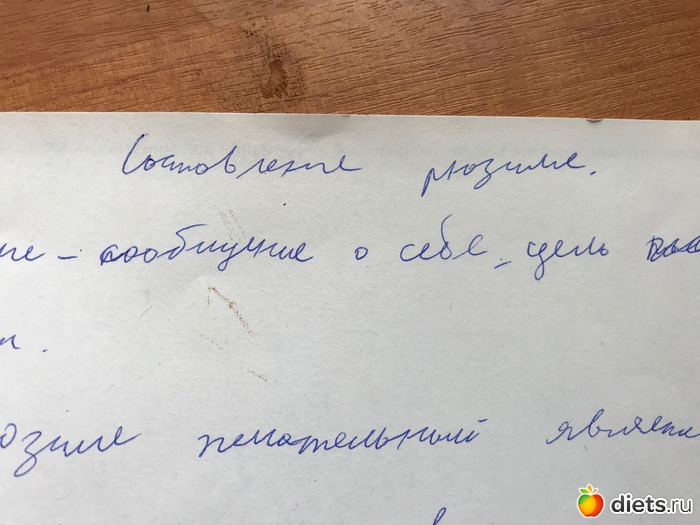 Составление рюзиме.
ие - сообщение о себе, цель
юзиме печательный являет
diets.ru